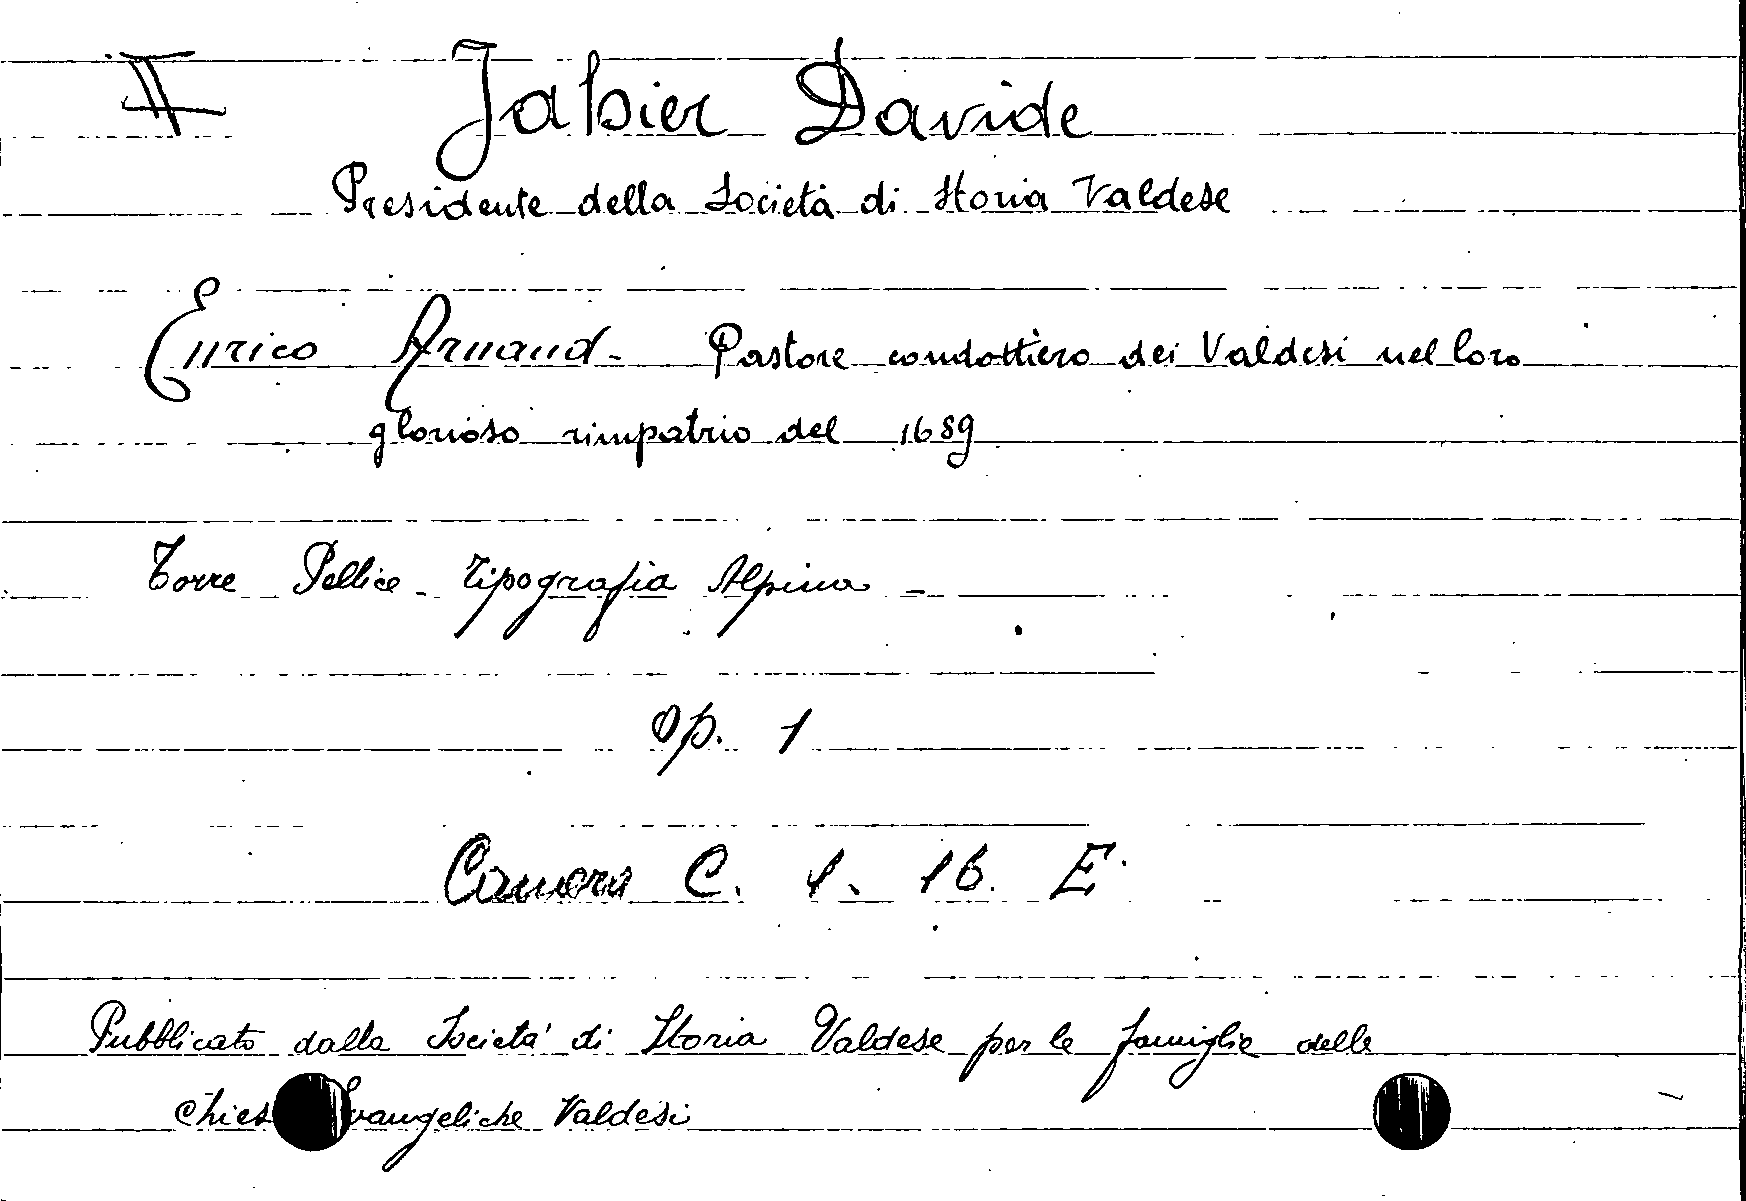 II Jahier Davide
Presidente della Società di Storia Valdese
Enrico Arnaud - Pastore condottiero dei Valdesi nel loro
glorioso rimpatrio del 1689
Torre Pellice - Tipografia Alpina -
Op. 1
Camera C. 1. 16. E.
Pubblicato dalla Società di Storia Valdese per le famiglie delle
Chies Evangeliche Valdesi